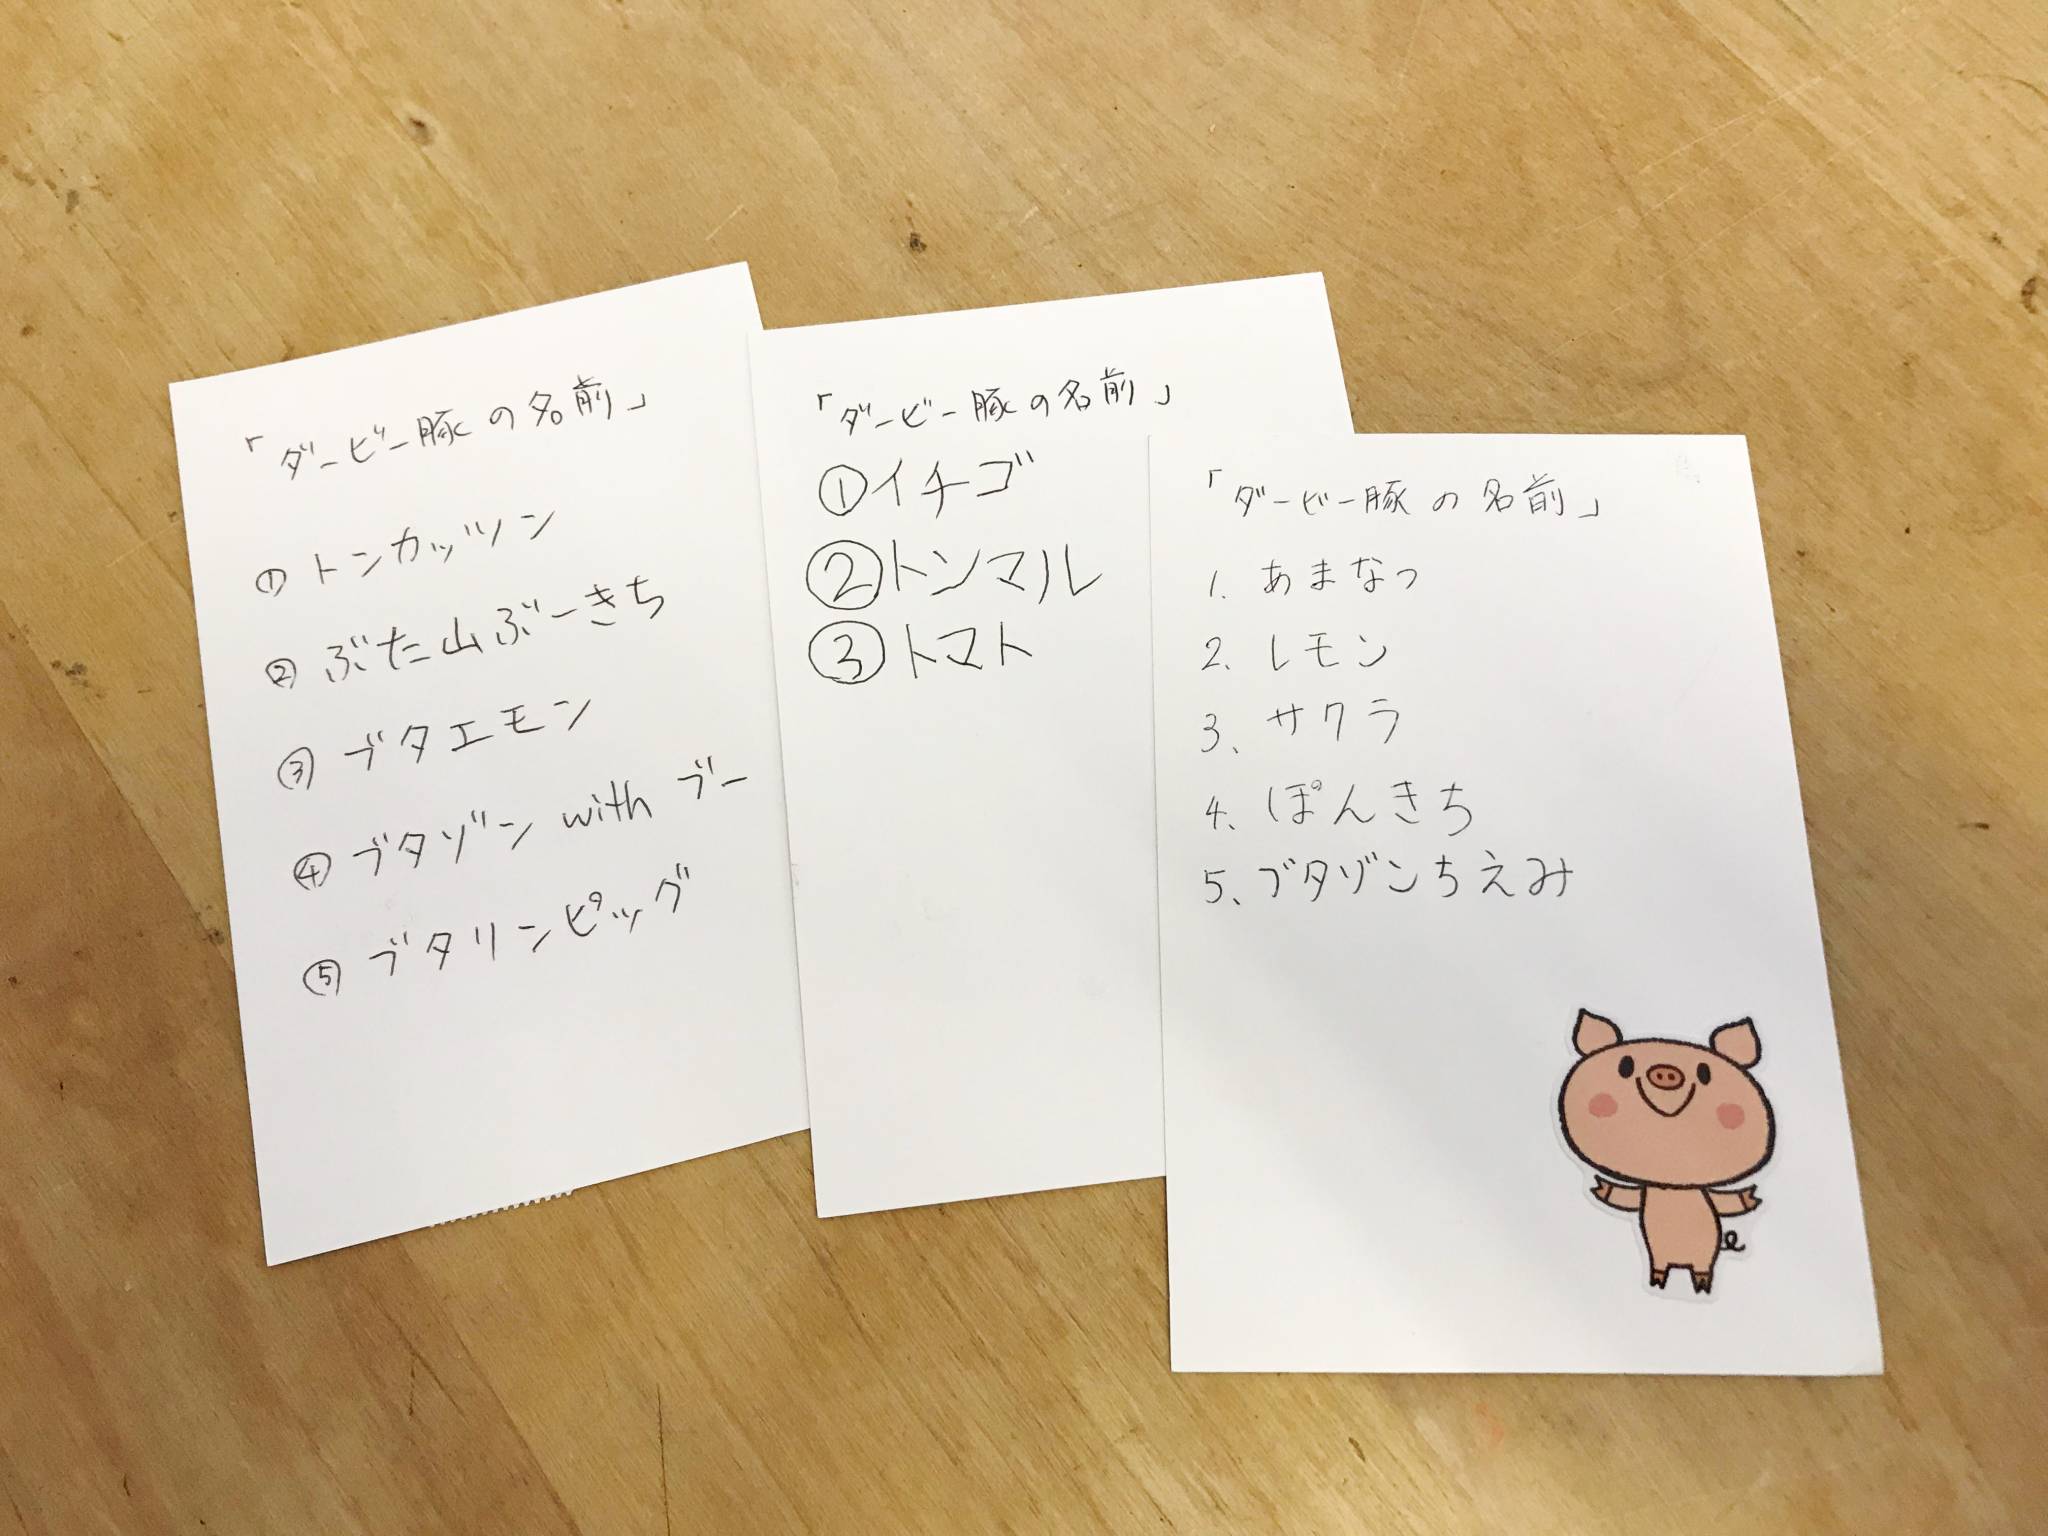 「ダービー豚の名前」
① トンカッツン
② ぶた山ぶーきち
③ ブタエモン
④ ブタゾン with ブー
⑤ ブタリンピッグ
「ダービー豚の名前」
①イチゴ
②トンマル
③トマト
「ダービー豚の名前」
1. あまなつ
2. レモン
3、サクラ
4、ぽんきち
5、ブタゾンちえみ